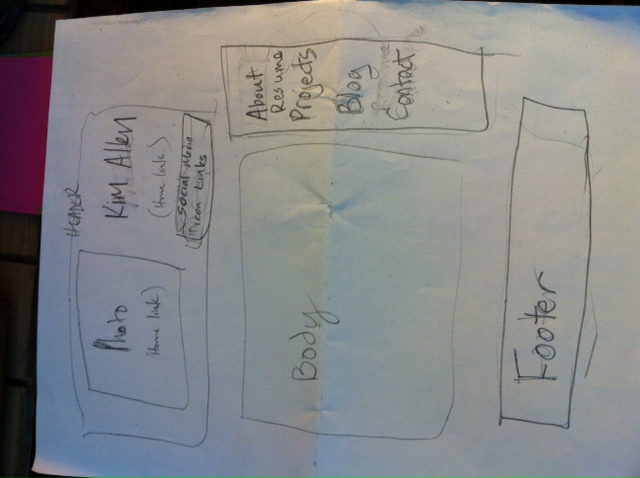 HEADER
Photo
(Home link)
Kim Allen
(Home link)
Social Media
icon Links
Body
About
Resume
Projects
Blog
Contact
Footer